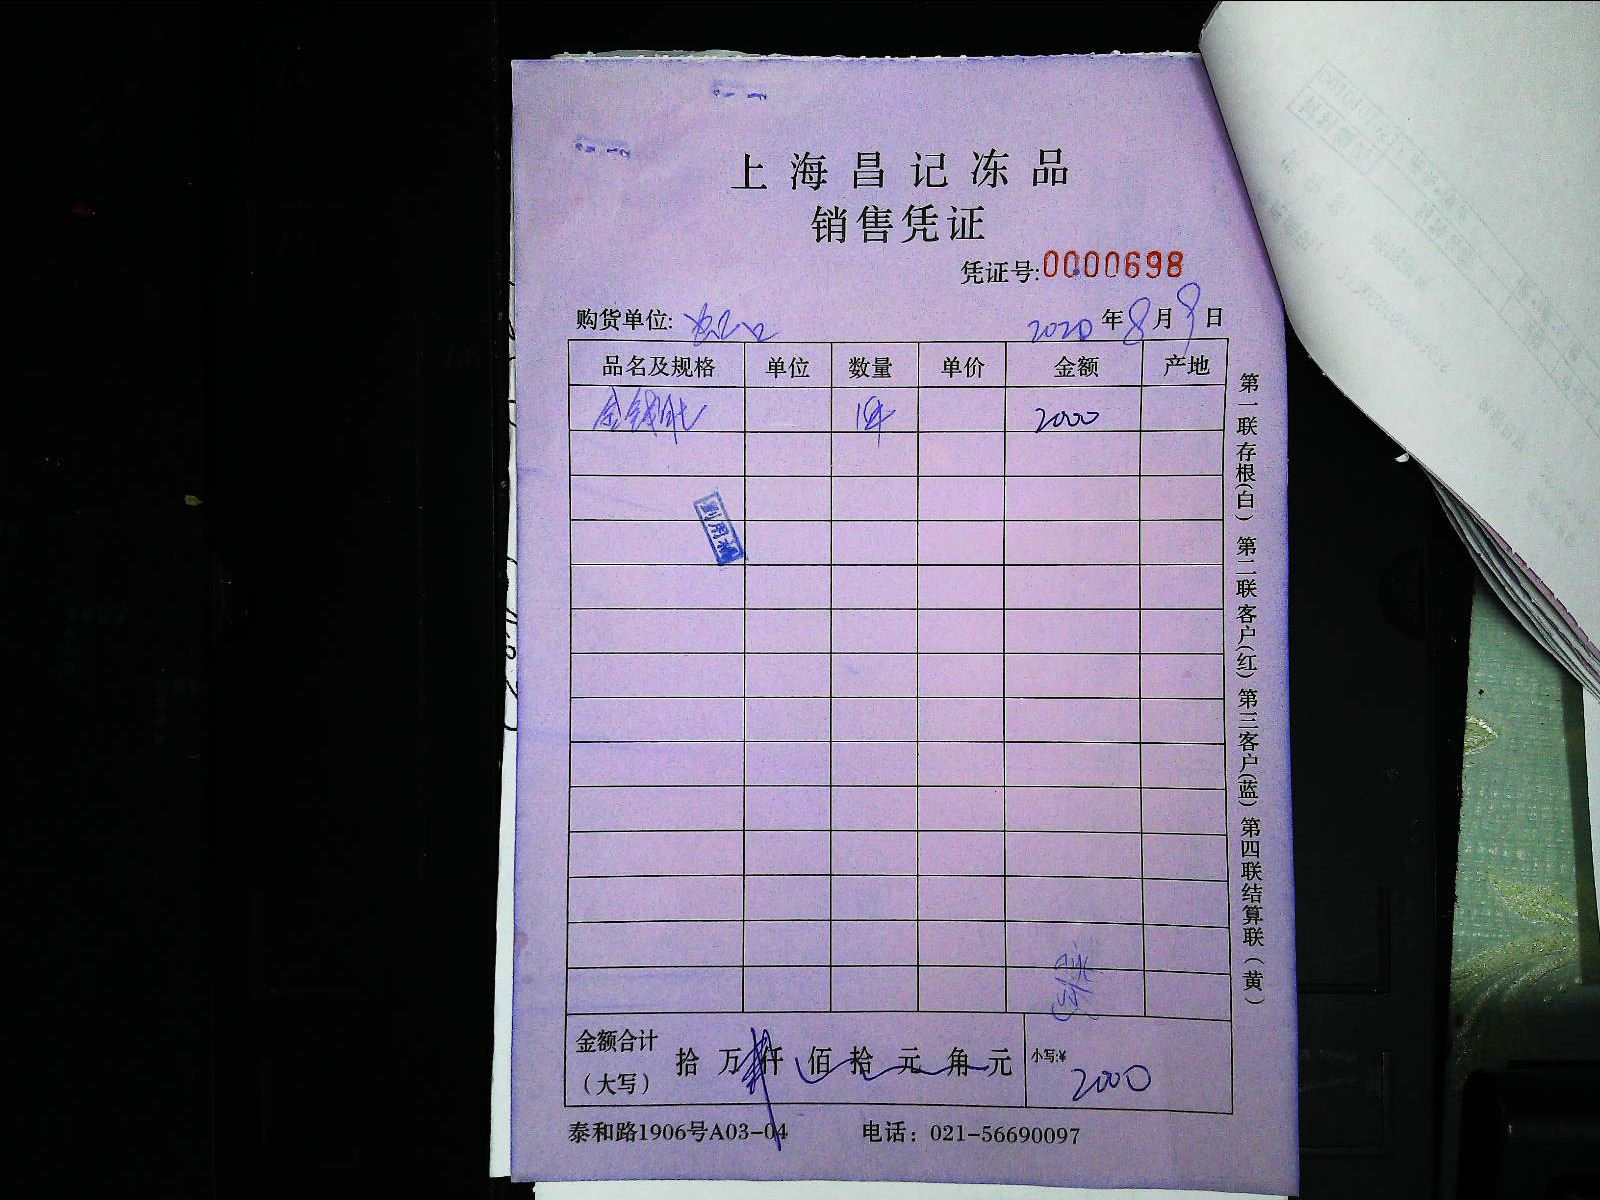 上海昌记冻品
销售凭证
凭证号:0000698
购货单位: 2020年8月9日
品名及规格 单位 数量 单价 金额 产地
金钱肚 1件 2000
金额合计
(大写)
拾 万 仟 佰 拾 元 角 元 小写:¥ 2000
泰和路1906号A03-04 电话：021-56690097
第一联存根(白) 第二联客户(红) 第三客户(蓝) 第四联结算联(黄)